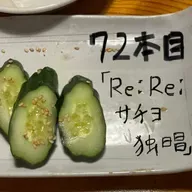 72本目
「Re:Rei
サチヨ
独唱」